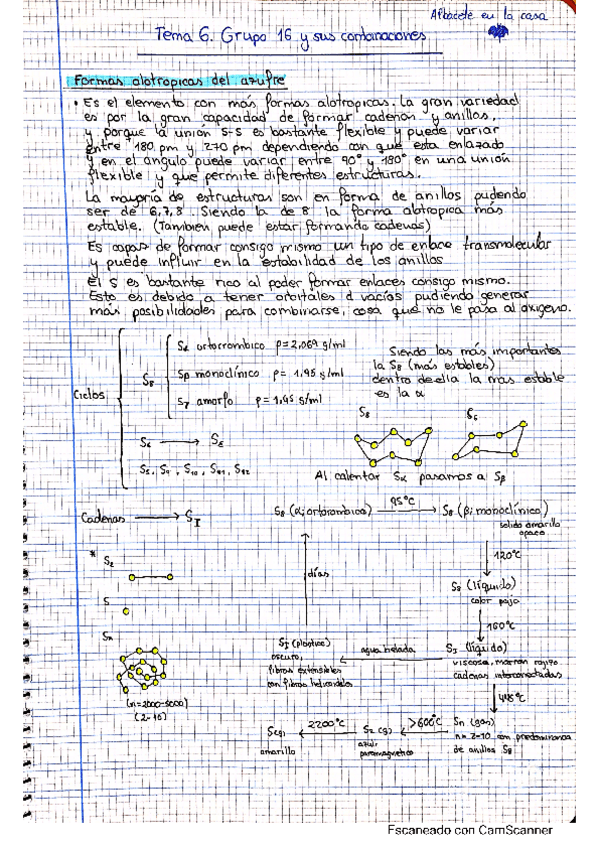 Albacete en la casa
Tema 6. Grupo 16 y sus combinaciones
Formas alotrópicas del azufre
• Es el elemento con más formas alotropicas. La gran variedad
es por la gran capacidad de formar cadenas y anillos,
y porque la unión S-S es bastante flexible y puede variar
entre 180 pm y 270 pm dependiendo con que esta enlazado
y en el ángulo puede variar entre 90° y 180° en una unión
flexible y que permite diferentes estructuras.
La mayoría de estructuras son en forma de anillos pudendo
ser de 6,7,8. Siendo la de 8 la forma alotropica más
estable. (Tambien puede estar formando cadenas)
Es capaz de formar consigo mismo un tipo de enlace transmolecular
y puede influir en la estabilidad de los anillos
El S es bastante rico al poder formar enlaces consigo mismo.
Esto es debido a tener orbitales d vacíos pudiendo generar
más posibilidades para combinarse, cosa que no le pasa al oxigeno.
Ciclos
S8
Sα ortorrombico ρ=2,069 g/ml
Sβ monoclínico ρ= 1,95 g/ml
Sγ amorfo ρ=1,95 g/ml
Siendo las más importantes
la S8 (más estables)
dentro de ella la mas estable
es la α
S8 S6
S6 → Sε
S5, S9, S10, S11, S12
Al calentar Sα pasamos a Sβ
Cadenas → SI
S8 (α; ortorombico) 95°C → S8 (β; monoclínico)
solido amarillo
opaco
* S2
S
Sn
(n=2000-5000)
(2-10)
días
120°C
S8 (líquido)
color paja
160°C
SI (líquido)
viscosa, marrón rojizo
cadenas interconectadas
agua helada
SI (plástico)
oscuro,
fibras extensibles
con fibras helicoidales
445°C
Sn (gas)
n= 2-10 con predominancia
de anillos S8
>600°C
S2 (g)
azul
paramagnetico
2200°C
S(g)
amarillo
Escaneado con CamScanner